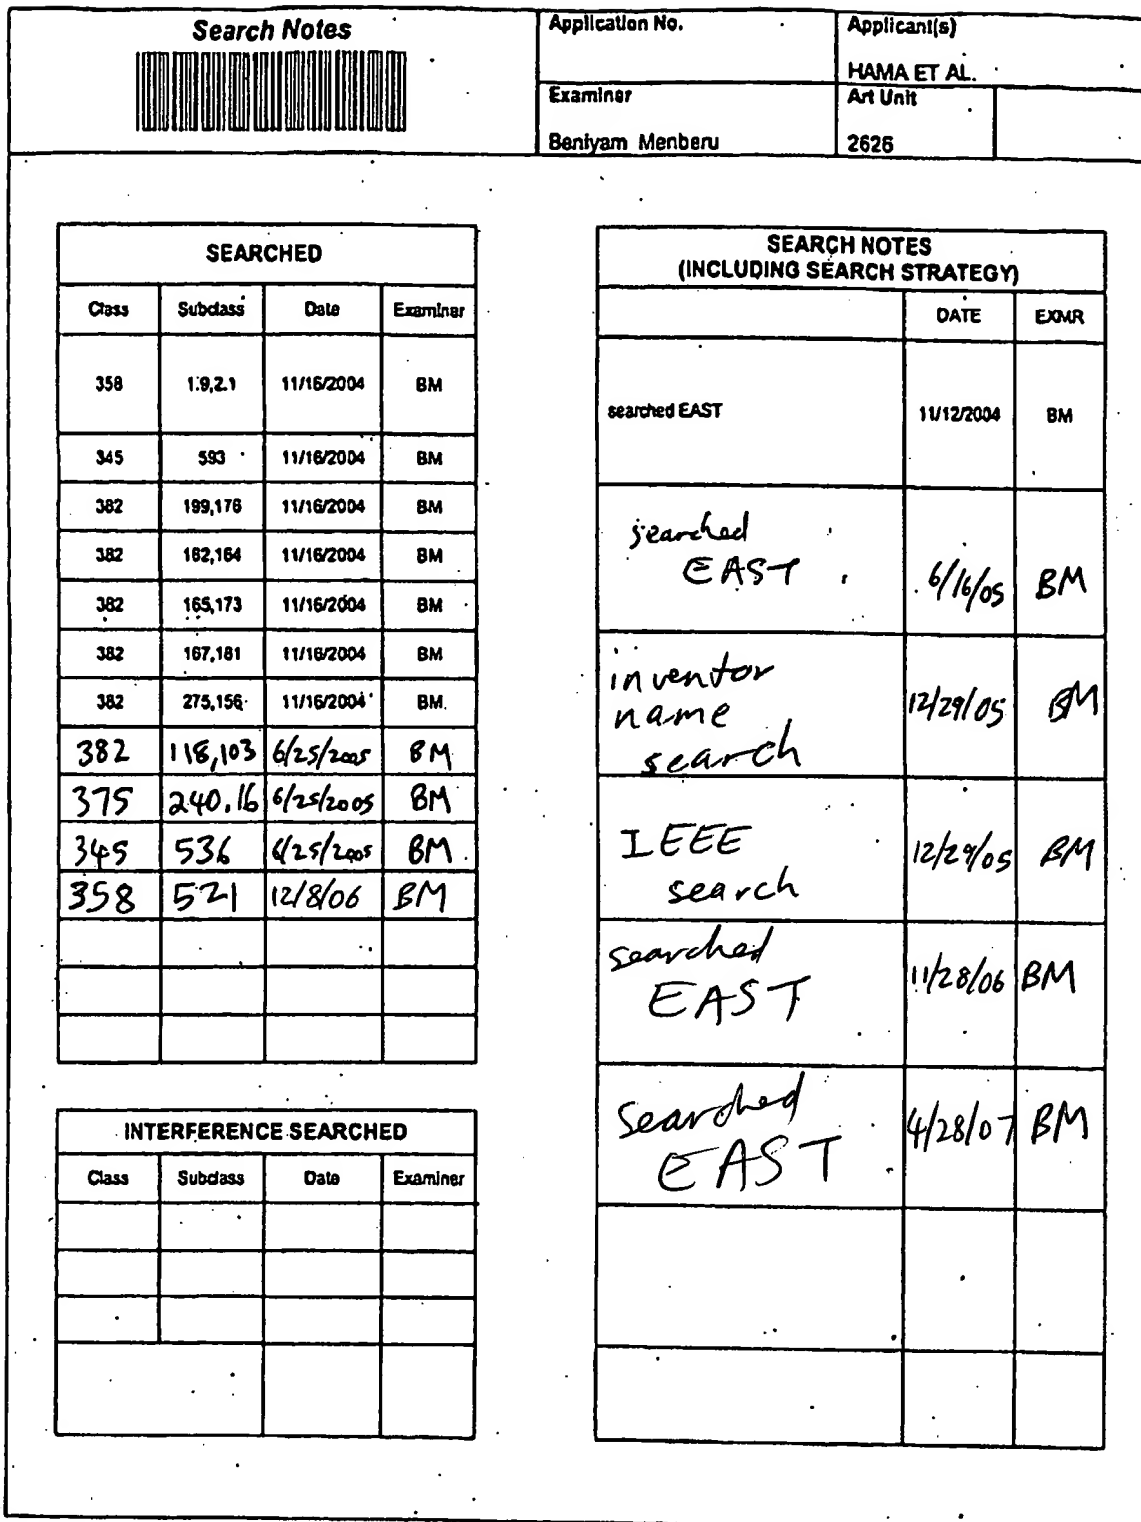 Search Notes
Application No.
Applicant(s)
HAMA ET AL.
Examiner
Art Unit
Beniyam Menberu
2626
SEARCHED
Class Subclass Date Examiner
358 1.9,2.1 11/16/2004 BM
345 593 11/16/2004 BM
382 199,176 11/16/2004 BM
382 162,164 11/16/2004 BM
382 165,173 11/16/2004 BM
382 167,181 11/16/2004 BM
382 275,156 11/16/2004 BM
382 118,103 6/25/2005 BM
375 240.16 6/25/2005 BM
345 536 6/25/2005 BM
358 521 12/8/06 BM
INTERFERENCE SEARCHED
Class Subclass Date Examiner
SEARCH NOTES
(INCLUDING SEARCH STRATEGY)
DATE EXMR
searched EAST 11/12/2004 BM
searched
EAST 6/16/05 BM
inventor
name 12/29/05 BM
search
IEEE 12/29/05 BM
search
searched
EAST 11/28/06 BM
searched
EAST 4/28/07 BM